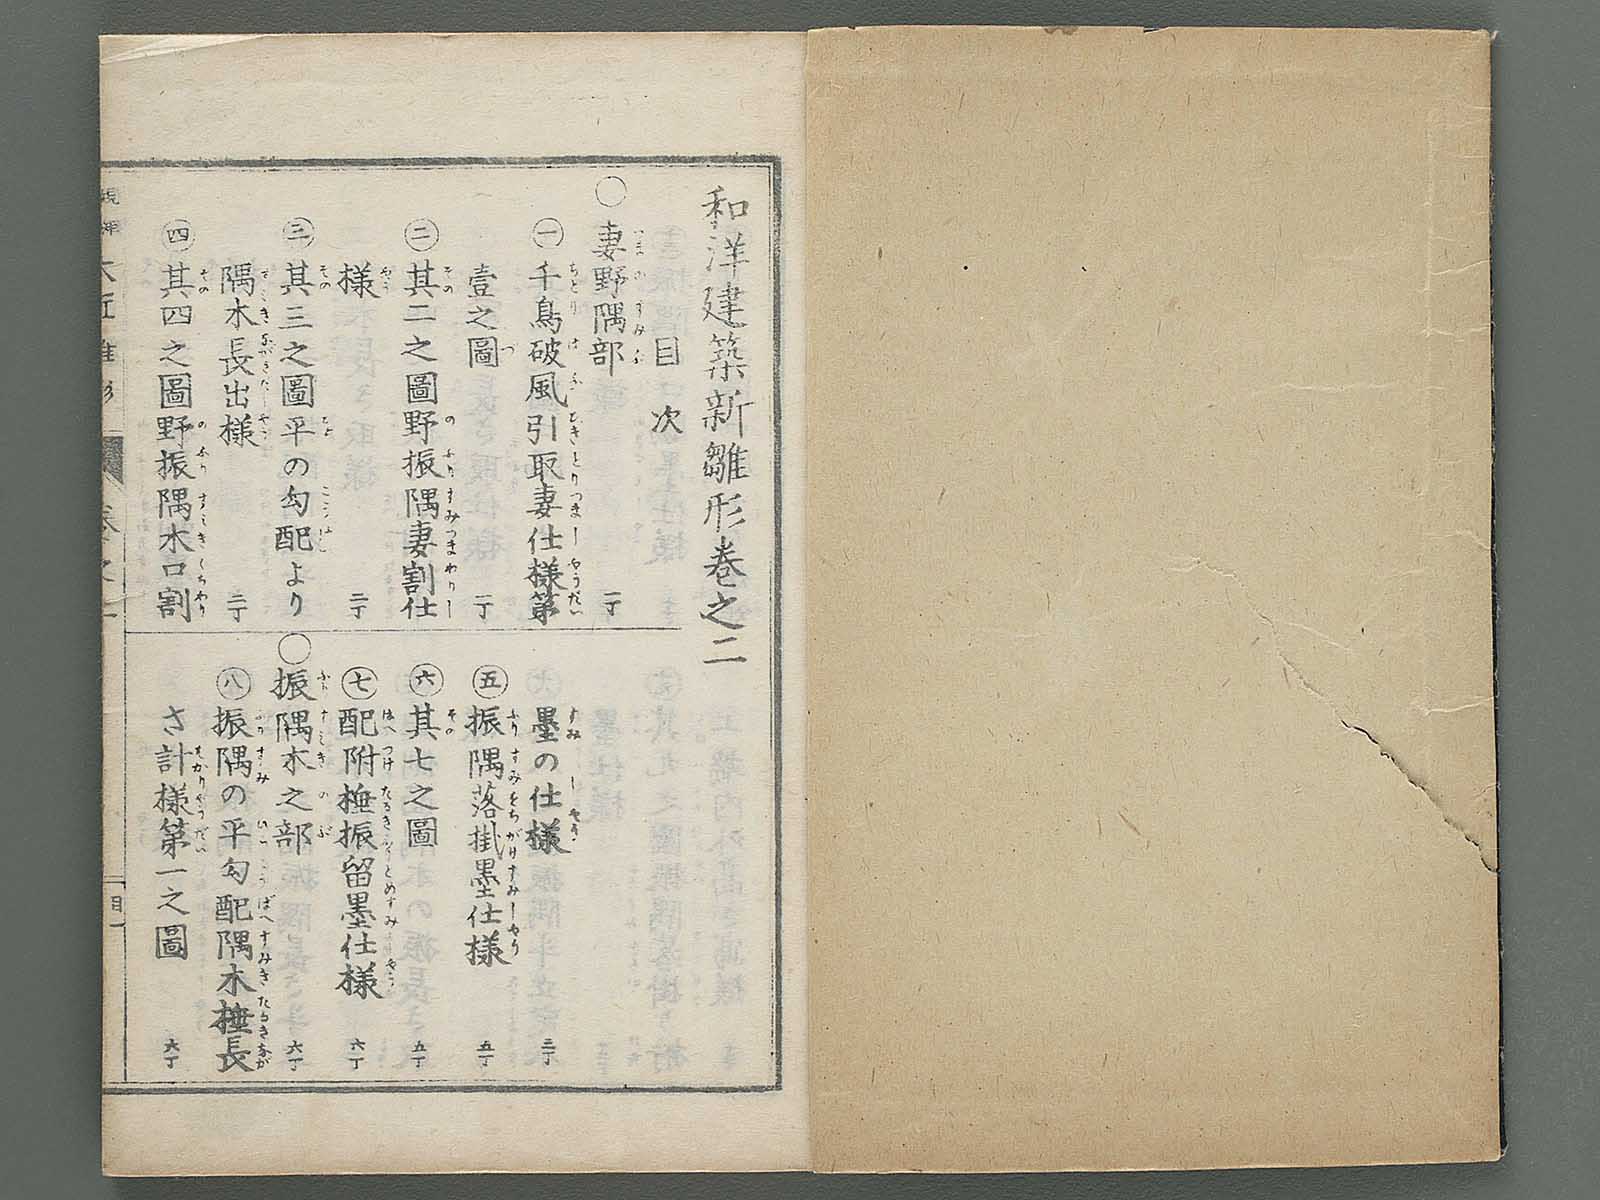 和洋建築新雛形巻之二
目次
◯妻野隅部 一丁
㊀千鳥破風引取妻仕様第
壹之圖 一丁
㊁其二之圖野振隅妻割仕
様 二丁
㊂其三之圖平の勾配より
隅木長出様 二丁
㊃其四之圖野振隅木口割
墨の仕様 三丁
㊄振隅落掛墨仕様 五丁
㊅其七之圖 五丁
㊆配附棰振留墨仕様 六丁
◯振隅木之部 六丁
㊇振隅の平勾配隅木棰長
さ計様第一之圖 六丁